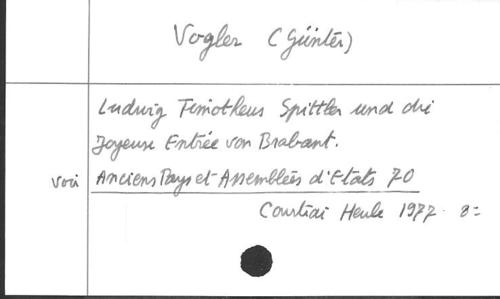 Vogler (Günter)
Ludwig Timotheus Spittler und die
Joyeuse Entrée von Brabant.
voir Anciens Pays et Assemblées d'Etats 70
Courtrai Heule 1977. 8=